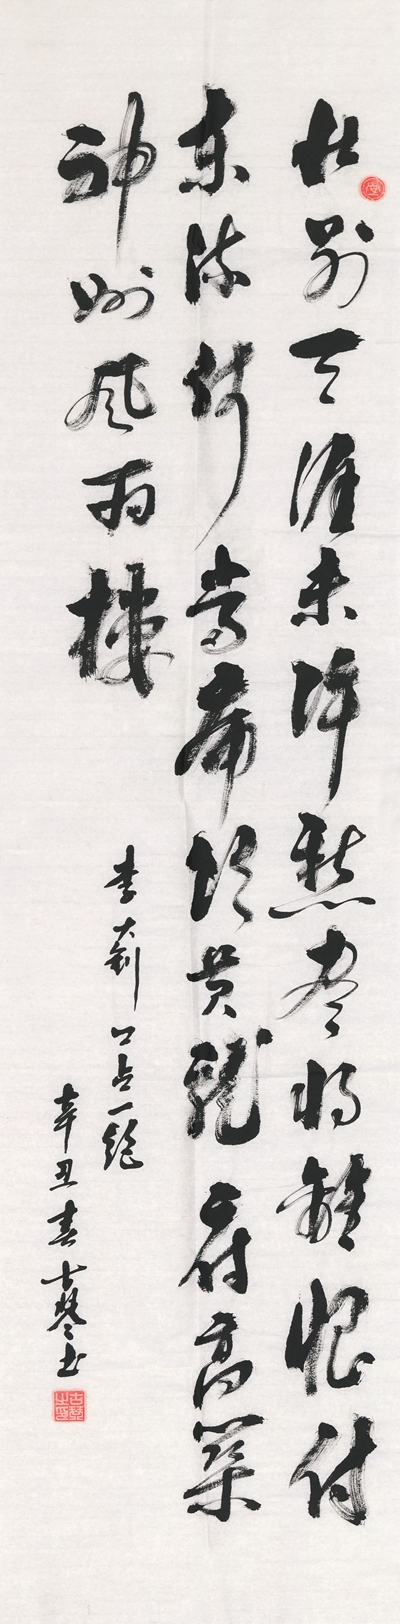 壮别天涯未许愁尽将離恨付
东流何当痛饮黄龍府高築
神州风雨楼
李大钊口占一絶
辛丑春书